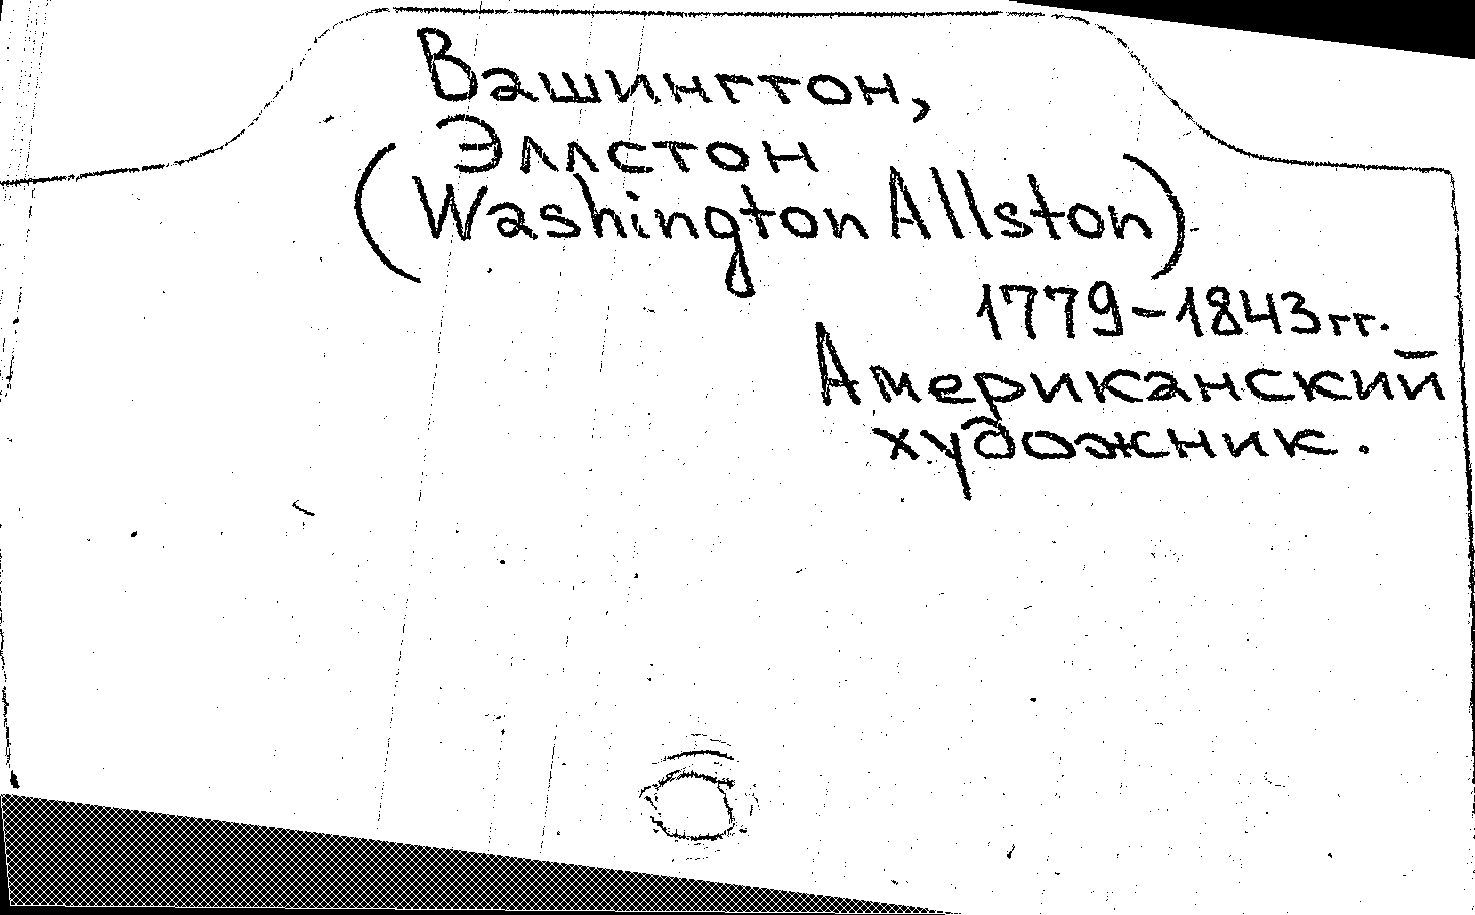 Вашингтон,
Эллстон
(Washington Allston)
1779-1843гг.
Американский
художник.